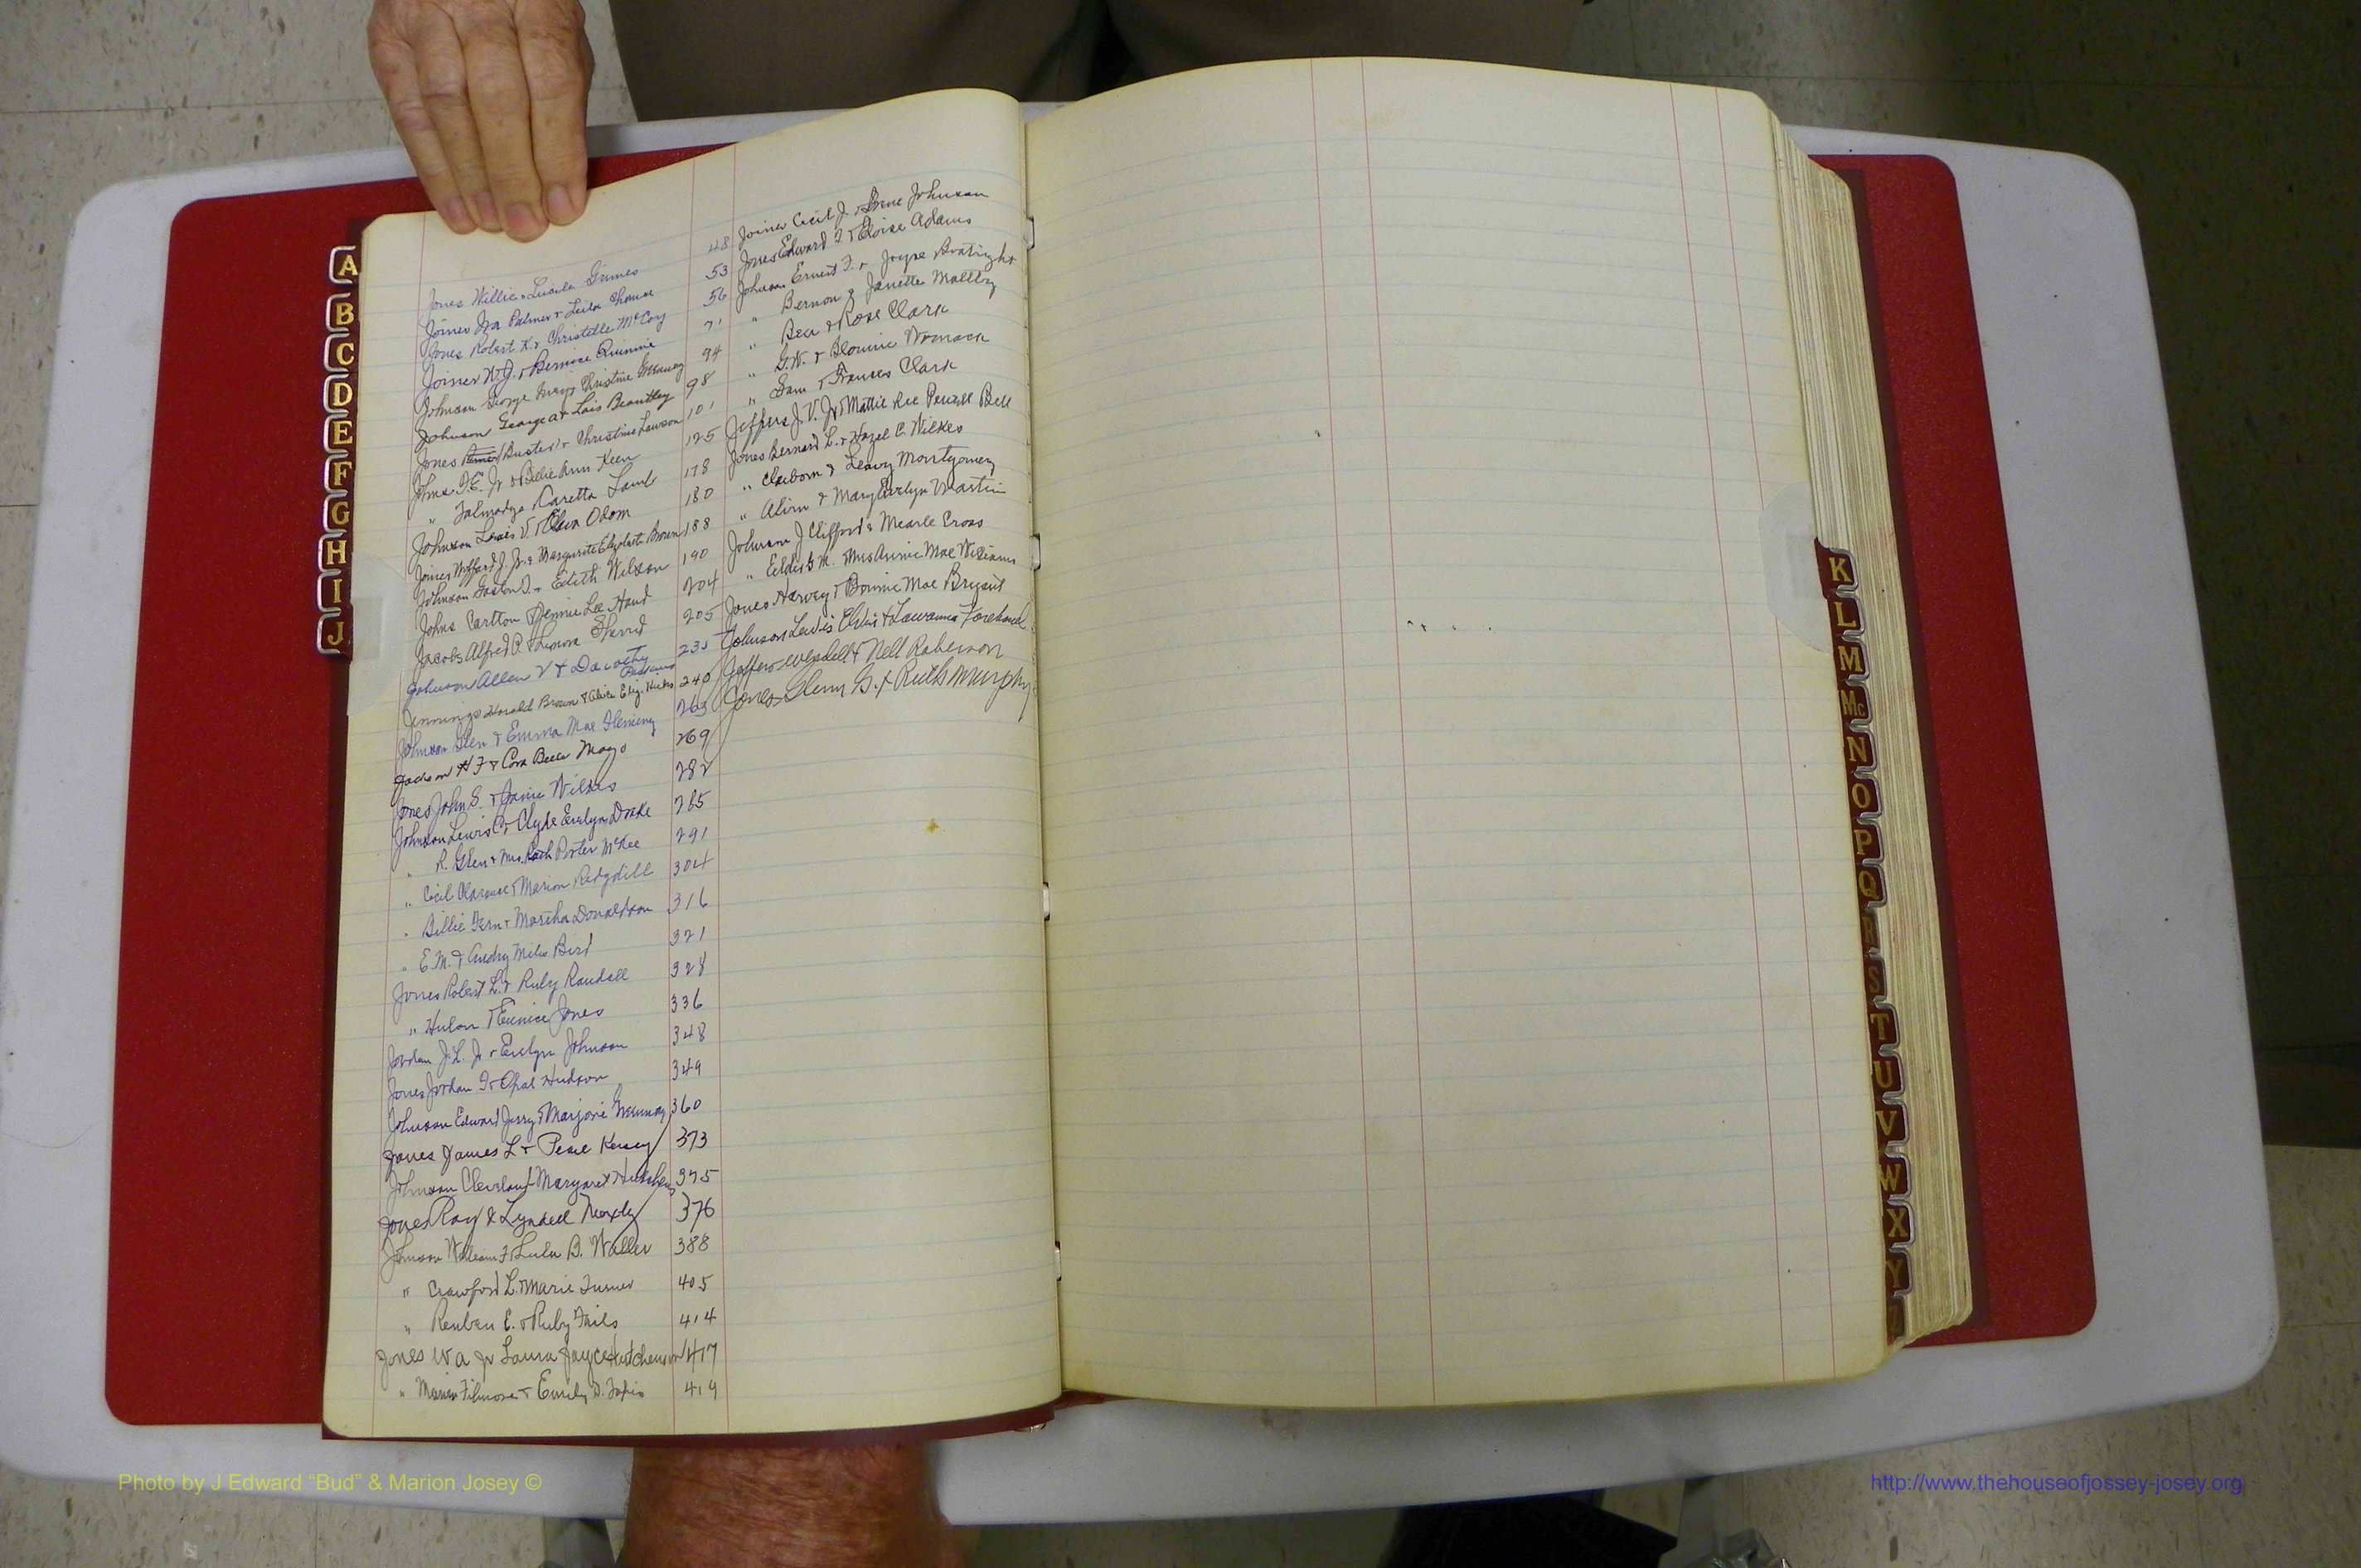 Jones Willie & Lucile Grimes 48
Joiner Ira Palmer & Leila Chance 53
Jones Robert K. & Christelle McCoy 56
Joiner W.J. & Bernice Quinnie 71
Johnson George Christine 94
Johnson George A & Lois Brantley 98
Jones (Buster) & Christine Lawson 101
Johns T.E. Jr & Billie Ann Keen 125
" Talmadge Karetta Lamb 178
Johnson Lewis V. & Elva Odom 180
Joiner J. Jr & Marguerite Elizabeth Brown 188
Johnson Gaston D. & Edith Wilson 190
Johns Carlton & Jennie Lee Hand 204
Jacobs Alfred P. & 205
Johnson Allen V & Dorothy 235
Jennings Harold Brown & Alice Eliz. Hicks 240
Johnson Glen & Emma Mae Fleming 263
Jackson H F & Cora Belle Mayo 269
Jones John S. & Janie Wilkes 282
Johnson Lewis C & Clyde Evelyn Drake 285
" R. Glen & Mrs. Ruth Porter McKee 291
" Cecil Clarence & Marion Ridgdill 304
" Billie Fern & Martha Donaldson 316
" E.M. & Audry Miles Bird 321
Jones Robert L. & Ruby Randall 328
" Hulon & Eunice Jones 336
Jordan J.L. Jr & Evelyn Johnson 348
Jones Jordan T & Opal Hudson 349
Johnson Edward Jerry & Marjorie 360
Jones James L & Pearl Kersey 373
Johnson Cleveland Margaret 375
Jones Roy & Lyndell Moxley 376
Johnson William F & Lula B. Waller 388
" Crawford L. & Marie Turner 405
" Reuben E. & Ruby Fails 414
Jones W A Jr Laura Jayce Hutcheson 417
" Marion Filmore & Emily D. 419
Joiner Cecil J. & Johnson
Jones Edward & Eloise Adams
Johnson Ernest F. & Joyce Boatright
" Bernon & Janette Maltby
" Ben & Rose Clark
" G.W. & Womack
" Sam & Frances Clark
Jeffers J.V. Jr & Mattie Ree Powell Bell
Jones Bernard L. & Hazel C. Wilkes
" Claiborn & Leavy Montgomery
" Alvin & Mary Evelyn Martin
Johnson J Clifford & Mearle Cross
" M. & Mrs Annie Mae Williams
Jones Harvey & Bonnie Mae Bryant
Johnson Lewis Elvis & Lawanna Forehand
Jeffers Wendell & Nell Roberson
Jones Glenn G. & Ruth Murphy
A
B
C
D
E
F
G
H
I
J
K
L
M
Mc
N
O
P
Q
R
S
T
U
V
W
X
Y
Z
Photo by J Edward “Bud” & Marion Josey ©
http://www.thehouseofjossey-josey.org